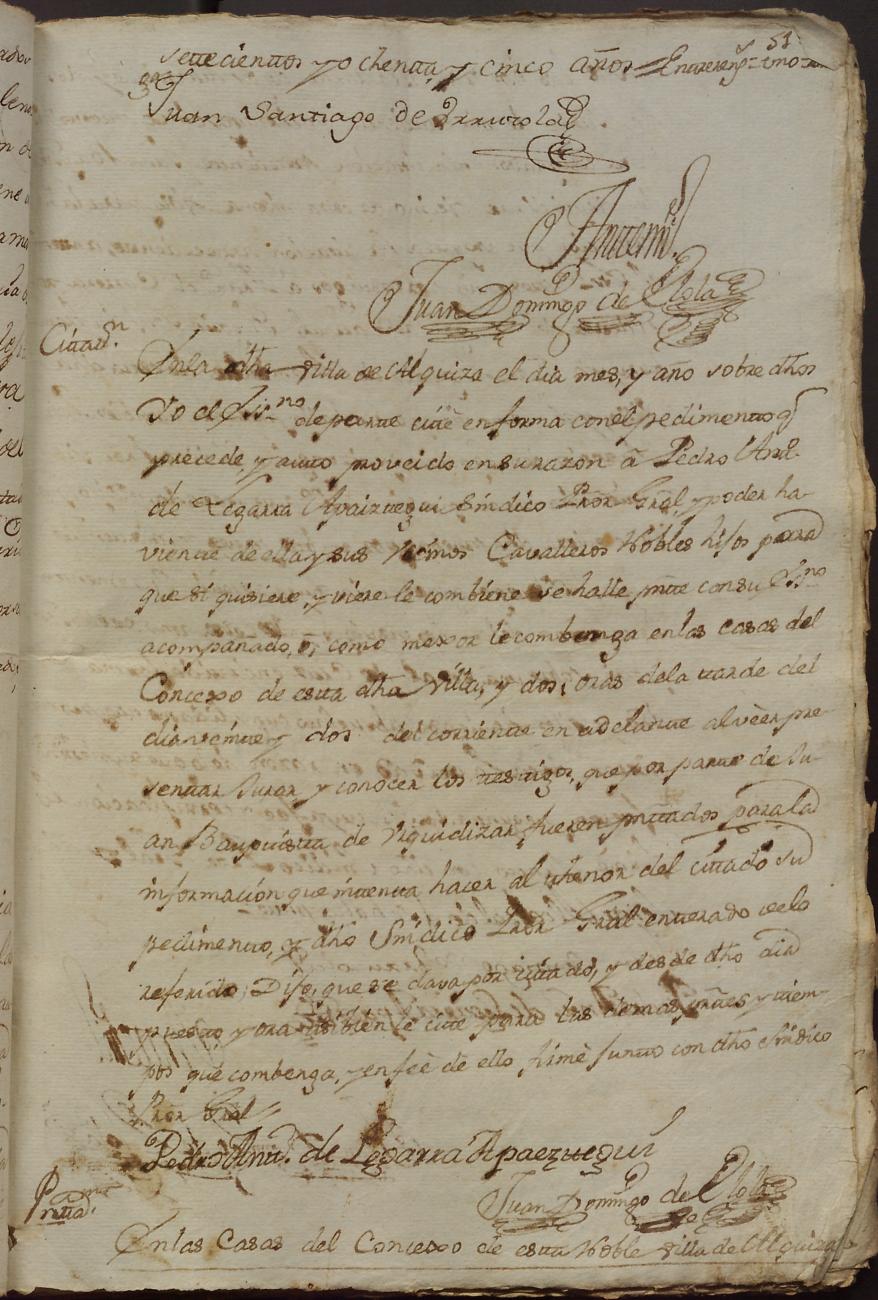 51
settecienttos y ochentta y cinco años = Entterreng.s = tmo =
Juan Santiago de Yrrutola
Antemi
Juan Domingo de Elola
Cittaz.on
En la dha villa de Alquiza el dia mes, y año sobre dhos
Yo el Ess.no de partte citté en forma con el pedimentto q.e
precede, y autto proveido en su razon â Pedro Antt.o
de Legarra Apaizttegui Síndico Pror Gral, y poder ha-
vientte de ella y sus Vecinos Cavalleros Nobles hijos para
que si quisiere, y viere le combiene se halle pntte con su Ess.no
acompañado, ô, como mexor le combenga en las casas del
Concexo de estta dha Villa, y dos, oras de la ttarde del
dia veintte y dos del corrientte en adelantte al vèer pre-
senttar Jurar y conocer los ttesttigos, que por partte de Ju-
an Baupttistta de Yquidizar fueren pnttados para la
información que inttentta hacer al tthenor del cittado su
pedimentto, y dho Síndico Pror Gral entterado de lo
referido; Dijo, que se dava por cittado, y desde dho dia
puestto y ora ttâbien le citte para las demas parttes y ttiem-
pos que combenga, y en feè de ello firmè juntto con dho Síndico
Pror Gral
Pedro Antt.o de Legarra Apaezttegui
Juan Domingo de Elola
Pnttaz.on
En las Casas del Concexo de estta Noble villa de Alquiza